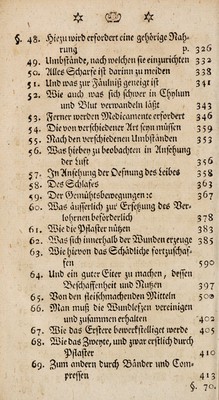 §. 48. Hiezu wird erfordert eine gehörige Nah⸗
rung p. 326
49. Umbstände, nach welchen sie einzurichten 332
50. Alles Scharfe ist darinn zu meiden 338
51. Und was zur Fäulniß geneigt ist 341
52. Wie auch was sich schwer in Chylum
und Blut verwandeln läßt 343
53. Ferner werden Medicamente erfordert 346
54. Die von verschiedener Art seyn müssen 359
55. Nach den verschiedenen Umbständen 353
56. Was hiebey zu beobachten in Ansehung
der Luft 356
57. In Ansehung der Oefnung des Leibes 358
58. Des Schlafes 363
59. Der Gemühtsbewegungen ꝛc 367
60. Was äusserlich zur Ersetzung des Ver⸗
lohrenen beforderlich 378
61. Wie die Pflaster nützen 383
62. Was sich innerhalb der Wunden erzeuge 385
63. Wie hievon das Schädliche fortzuschaf⸗
fen 390
64. Und ein guter Eiter zu machen, dessen
Beschaffenheit und Nutzen 397
65. Von den fleischmachenden Mitteln 500
66. Man muß die Wundlefzen vereinigen
und zusammen erhalten 402
67. Wie das Erstere bewerkstelliget werde 405
68. Wie das Zweyte, und zwar erstlich durch
Pflaster 410
69. Zum andern durch Bänder und Com⸗
pressen 413
§. 70.